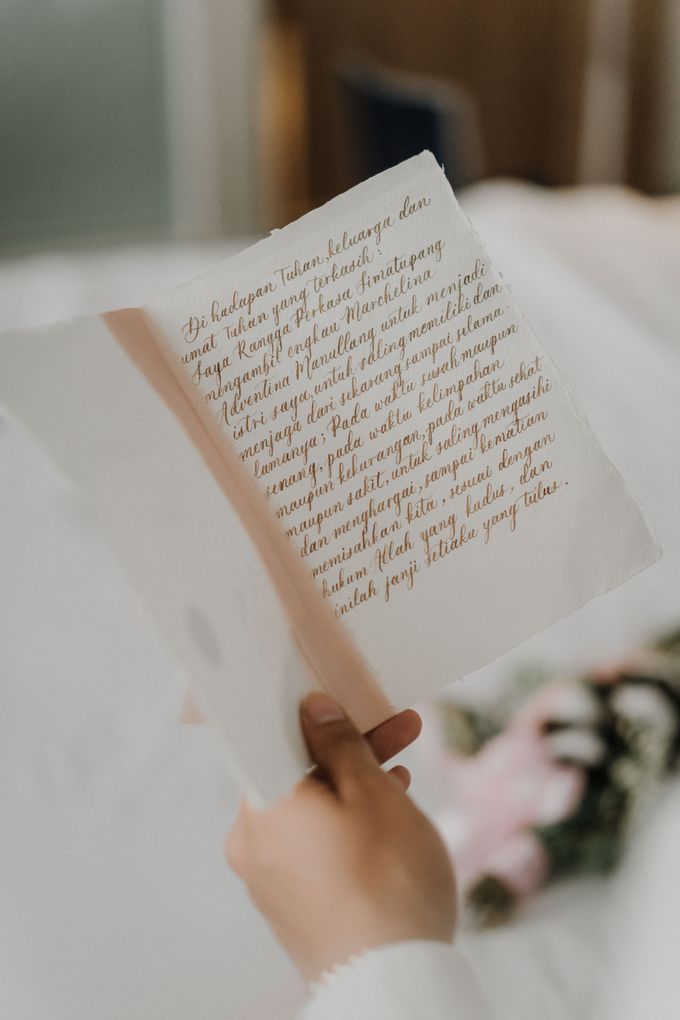 Di hadapan Tuhan, keluarga dan
umat Tuhan yang terkasih :
Saya Rangga Perkasa Simatupang
mengambil engkau Marchelina
Adventina Manullang untuk menjadi
istri saya, untuk saling memiliki dan
menjaga dari sekarang sampai selama-
lamanya ; Pada waktu susah maupun
senang, pada waktu kelimpahan
maupun kekurangan, pada waktu sehat
maupun sakit, untuk saling mengasihi
dan menghargai, sampai kematian
memisahkan kita, sesuai dengan
hukum Allah yang kudus, dan
inilah janji setiaku yang tulus.